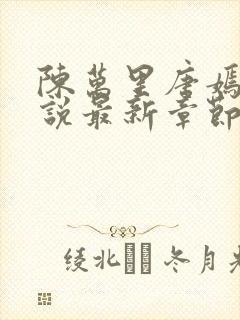 陳萬里唐嫣
說最新章節
綾北 冬月